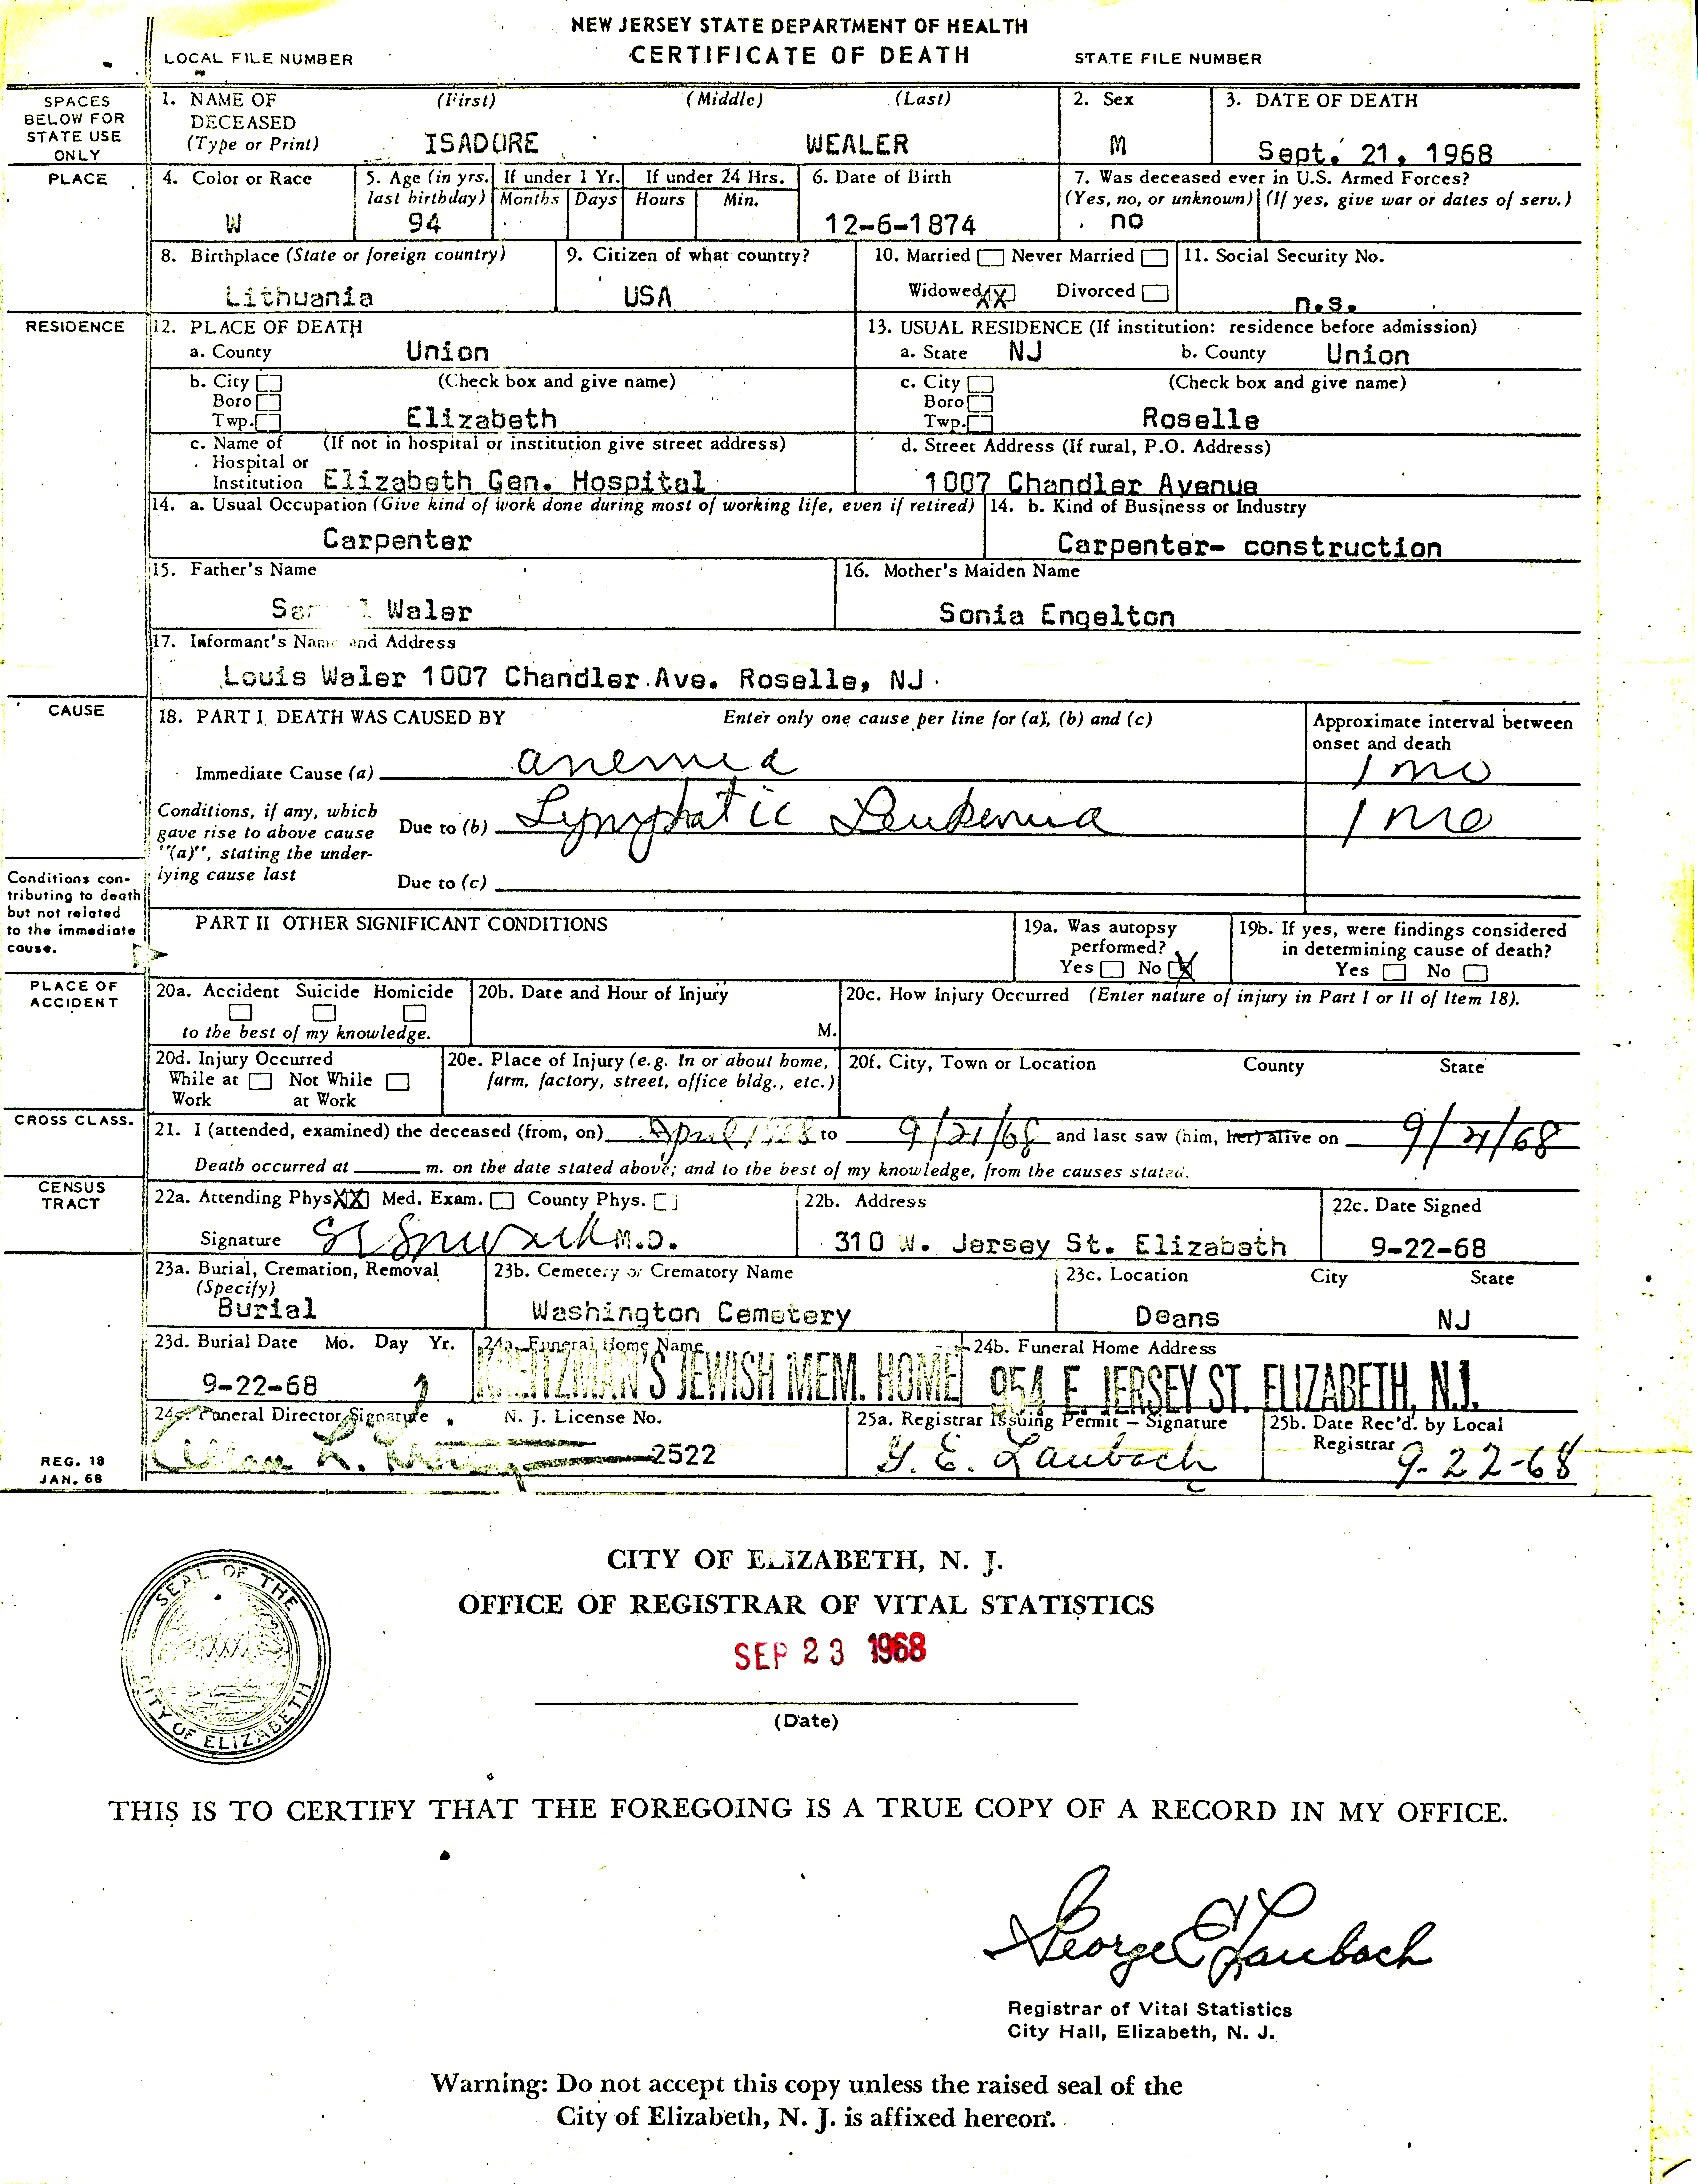 NEW JERSEY STATE DEPARTMENT OF HEALTH
CERTIFICATE OF DEATH
LOCAL FILE NUMBER
STATE FILE NUMBER
SPACES BELOW FOR STATE USE ONLY
1. NAME OF DECEASED (Type or Print) (First) (Middle) (Last)
ISADORE WEALER
2. Sex
M
3. DATE OF DEATH
Sept. 21, 1968
PLACE
4. Color or Race
W
5. Age (in yrs. last birthday)
94
If under 1 Yr. Months Days
If under 24 Hrs. Hours Min.
6. Date of Birth
12-6-1874
7. Was deceased ever in U.S. Armed Forces?
(Yes, no, or unknown) (If yes, give war or dates of serv.)
no
8. Birthplace (State or foreign country)
Lithuania
9. Citizen of what country?
USA
10. Married Never Married
Widowed XX Divorced
11. Social Security No.
n.s.
RESIDENCE
12. PLACE OF DEATH
a. County Union
b. City Boro Twp. (Check box and give name)
Elizabeth
c. Name of Hospital or Institution (If not in hospital or institution give street address)
Elizabeth Gen. Hospital
13. USUAL RESIDENCE (If institution: residence before admission)
a. State NJ b. County Union
c. City Boro Twp. (Check box and give name)
Roselle
d. Street Address (If rural, P.O. Address)
1007 Chandler Avenue
14. a. Usual Occupation (Give kind of work done during most of working life, even if retired)
Carpenter
14. b. Kind of Business or Industry
Carpenter- construction
15. Father's Name
Waler
16. Mother's Maiden Name
Sonia Engelton
17. Informant's Name and Address
Louis Waler 1007 Chandler Ave. Roselle, NJ
CAUSE
18. PART I. DEATH WAS CAUSED BY Enter only one cause per line for (a), (b) and (c)
Approximate interval between onset and death
Immediate Cause (a) anemia 1 mo
Conditions, if any, which gave rise to above cause "(a)", stating the underlying cause last
Due to (b) Lymphatic Leukemia 1 mo
Due to (c)
Conditions contributing to death but not related to the immediate cause.
PART II OTHER SIGNIFICANT CONDITIONS
19a. Was autopsy performed?
Yes No X
19b. If yes, were findings considered in determining cause of death?
Yes No
PLACE OF ACCIDENT
20a. Accident Suicide Homicide
to the best of my knowledge.
20b. Date and Hour of Injury
M.
20c. How Injury Occurred (Enter nature of injury in Part I or II of Item 18).
20d. Injury Occurred
While at Work Not While at Work
20e. Place of Injury (e.g. In or about home, farm, factory, street, office bldg., etc.)
20f. City, Town or Location County State
CROSS CLASS.
21. I (attended, examined) the deceased (from, on) April to 9/21/68 and last saw (him, her) alive on 9/21/68
Death occurred at m. on the date stated above; and to the best of my knowledge, from the causes stated.
CENSUS TRACT
22a. Attending Phys XX Med. Exam. County Phys.
Signature M.D.
22b. Address
310 W. Jersey St. Elizabeth
22c. Date Signed
9-22-68
23a. Burial, Cremation, Removal (Specify)
Burial
23b. Cemetery or Crematory Name
Washington Cemetery
23c. Location City State
Deans NJ
23d. Burial Date Mo. Day Yr.
9-22-68
24a. Funeral Home Name
KREITZMAN'S JEWISH MEM. HOME
24b. Funeral Home Address
954 E. JERSEY ST. ELIZABETH, N.J.
24c. Funeral Director Signature N. J. License No.
2522
25a. Registrar Issuing Permit - Signature
G. E. Laubach
25b. Date Rec'd. by Local Registrar
9-22-68
REG. 18
JAN. 68
CITY OF ELIZABETH, N. J.
OFFICE OF REGISTRAR OF VITAL STATISTICS
SEP 23 1968
(Date)
SEAL OF THE CITY OF ELIZABETH
THIS IS TO CERTIFY THAT THE FOREGOING IS A TRUE COPY OF A RECORD IN MY OFFICE.
George E Laubach
Registrar of Vital Statistics
City Hall, Elizabeth, N. J.
Warning: Do not accept this copy unless the raised seal of the
City of Elizabeth, N. J. is affixed hereon.